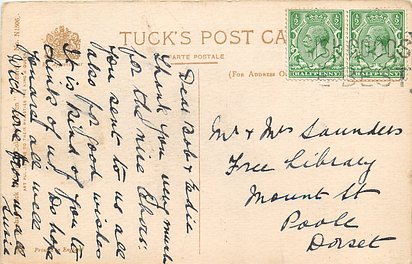 TUCK'S POST CA
CARTE POSTALE
(For Address O
HALFPENNY
HALFPENNY
Dear Bob &
Thank you very much
for the nice
you sent to us all
also for good wishes
It is kind of you to
think of us. Do hope
you are all well
With love from us all
Mr & Mrs Saunders
Free Library
Mount St
Poole
Dorset